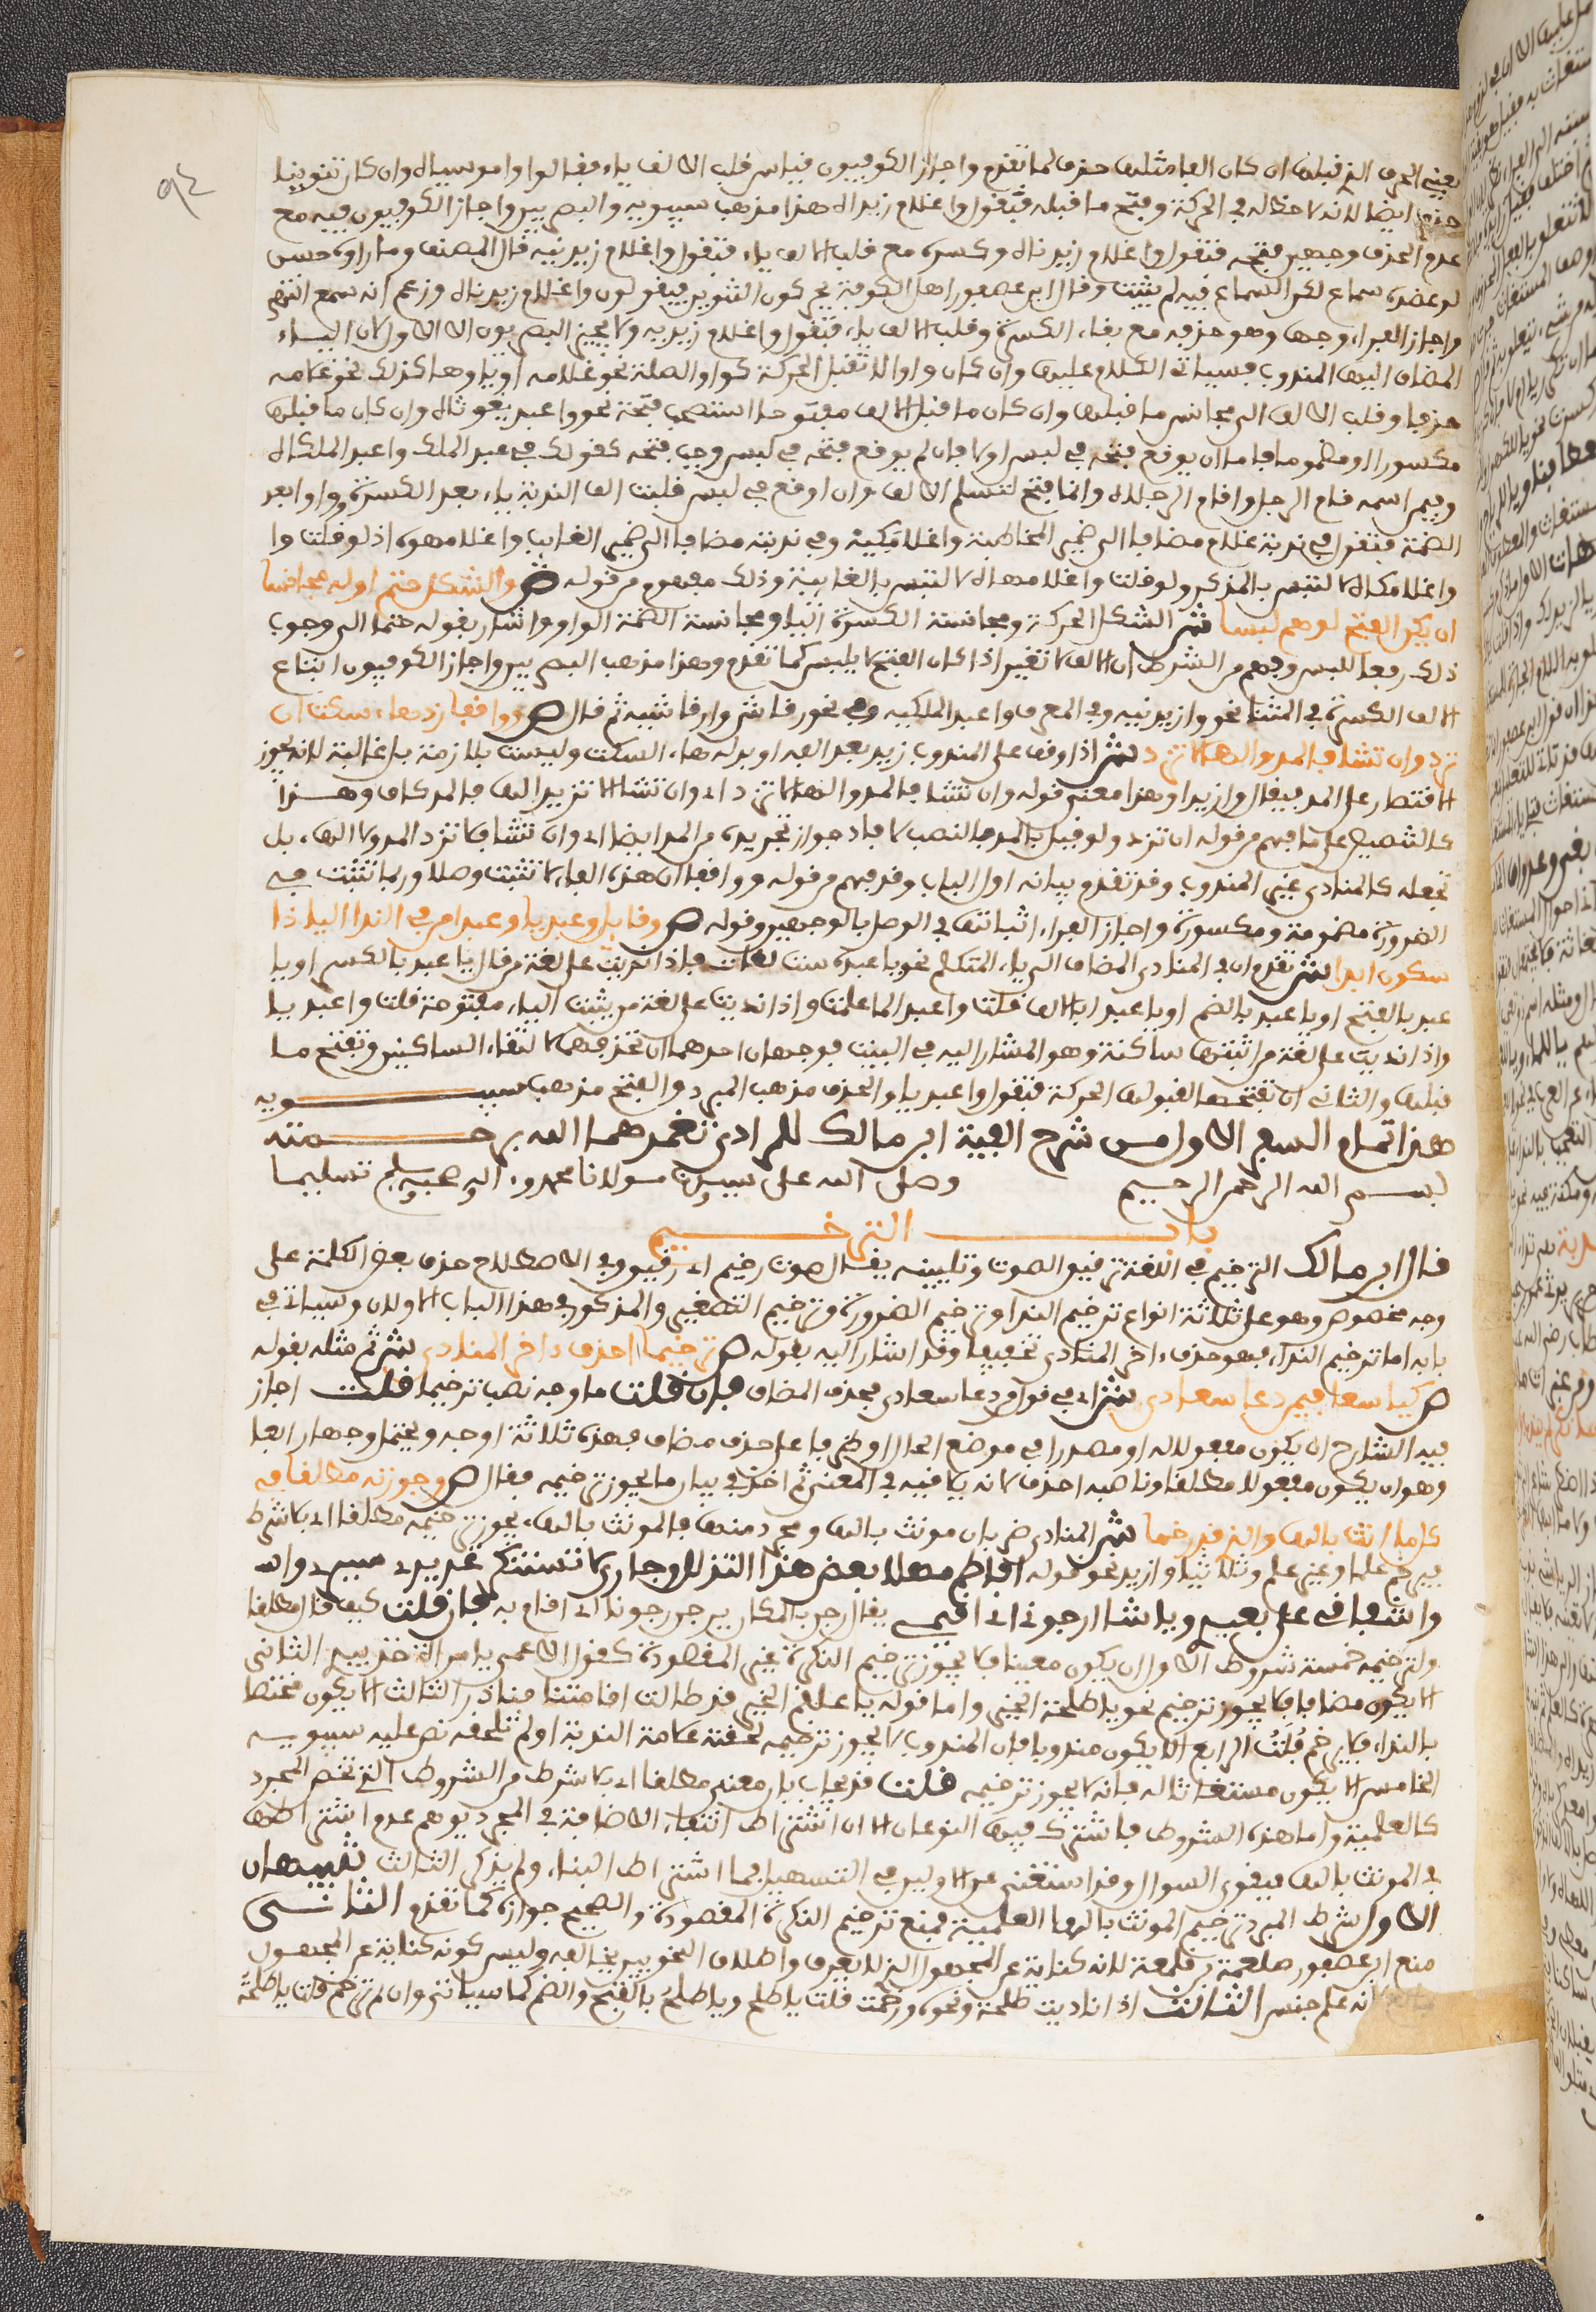 ٩٤
يعني الحرف الذي قبلها ان كان الفا مثلها حذف لما تقدم واجاز الكوفيون قياسا قلب الالف ياء فقالوا واموسياه وان كان تنوينا
حذف ايضا لانه لا حظ له في الحركة وفتح ما قبله فتقول واغلام زيداه هذا مذهب سيبويه والبصريين واجاز الكوفيون فيه مع
عدم الحذف وجهين فتحه فتقول واغلام زيدناه وكسره مع قلب الالف ياء فتقول واغلام زيدنيه قال المصنف وما راوه حسن
لو عضده سماع لكن السماع فيه لم يثبت وقال ابن عصفور اهل الكوفة يحركون التنوين فيقولون واغلام زيدناه وزعم انه سمع انتهى
واجاز الفراء وجها وهو حذفه مع بقاء الكسرة وقلب الالف ياء فتقول واغلام زيديه ولا يجيز البصريون الا الاول لان الياء
المضاف اليها المندوب فسياتي الكلام عليها وان كان واوا لا تقبل الحركة كواو الصلة نحو غلامه او ياوها كذلك نحو غلامه
حذفا وقلب الالف الى مجانس ما قبلها وان كان ما قبل الالف مفتوحا استصحب فتحه نحو واعبد يغوثاه وان كان ما قبلها
مكسورا او مضموما فاما ان يوقع فتحه في لبس اولا فان لم يوقع فتحه في لبس وجب فتحه كقولك في عبد الملك واعبد الملكاه
وفيمن اسمه قام الرجل واقام الرجلاه وانما فتح لتسلم الالف وان اوقع في لبس قلبت الف الندبة ياء بعد الكسرة وواوا بعد
الضمة فتقول في ندبة غلام مضافا الى ضمير المخاطبة واغلامكيه وفي ندبته مضافا الى ضمير الغايب واغلامهوه اذ لو قلت وا
واغلامكاه لالتبس بالمذكر ولو قلت واغلامهاه لالتبس بالغايبة وذلك مفهوم من قوله ص والشكل حتما اوله مجانسا
ان يكن الفتح لوهم لبسا ش الشكل الحركة ومجانسة الكسرة اليا ومجانسة الضمة الواو واشار بقوله حتما الى وجوب
ذلك رفعا للبس وفهم من الشرط ان الالف لا تغير اذا كان الفتح لا يلبس كما تقدم وهذا مذهب البصريين واجاز الكوفيون اتباع
الالف الكسرة في المثنى نحو وازيدنيه وفي المعرف واعبد الملكيه وفي نحو رقاش وارقاشيه ثم قال ص وواقفا زد هاء سكت ان
ترد وان تشا فالمد والها لا تزد ش اذا وقف على المندوب زيد بعد الفه او بدله هاء السكت وليست بلازمة بل غالبة لانه يجوز
الاقتصار على المد فيقال وازيدا وهذا معنى قوله وان تشا فالمد والها لا تزد اي وان تشا الا تزيد الها فالمد كاف وهــذا
كالتصريح على ما فهم من قوله ان ترد ولو قيل بالمد فالنصب لافاد جواز تجريده من المد ايضا اي وان تشا فلا تزد المد ولا الهاء بل
تجعله كالمنادى غير المندوب وقد تقدم بيانه اول الباب وقد فهم من قوله وواقفا ان هذه الهاء لا تثبت وصلا وربما تثبت في
الضرورة مضمومة ومكسورة واجاز الفراء اثباتها في الوصل بالوجهين وقوله ص وقايل واعبديا واعبدا من في الندا اليا ذا
سكون ابدا ش تقدم ان في المنادى المضاف الى ياء المتكلم نحو يا عبدي ست لغات فاذا ندبت على لغة من قال يا عبد بالكسر او يا
عبد بالفتح او يا عبد بالضم او يا عبدا بالالف قلت واعبدا لما علمت واذا ندبت على لغة من يثبت الياء مفتوحة قلت واعبديا
واذا ندبت على لغة من اثبتها ساكنة وهو المشار اليه في البيت فوجهان احدهما ان تحذفها لالتقاء الساكنين وتفتح ما
قبلها والثاني ان تفتحها لقبولها الحركة فتقول واعبديا والحذف مذهب المبرد والفتح مذهب سيبـــويه
هذا تمام السفر الاول من شرح الفية ابن مالك للمرادي تغمدهما الله برحـــمته
بســم الله الرحمن الرحيم وصلى الله على سيدنا ومولانا محمد واله وصحبه وسلم تسليما
بــاب الترخـــيم
قال ابن مالك الترخيم في اللغة ترقيق الصوت وتليينه يقال صوت رخيم اي رقيق وفي الاصطلاح حذف بعض الكلمة على
وجه مخصوص وهو على ثلاثة انواع ترخيم الندا وترخيم الضرورة وترخيم التصغير والمذكور في هذا الباب الاولان وسياتي في
بابه اما ترخيم النداء فهو حذف ءاخر المنادى تخفيفا وقد اشار اليه بقوله ص ترخيما احذف ءاخر المنادى ش ثم مثله بقوله
ص كيا سعا فيمن دعا سعادى ش اي في قول من دعا سعادى فحذف المضاف فان قلت ما وجه نصب ترخيما قلت اجاز
فيه الشارح ان يكون مفعولا له او مصدرا في موضع الحال او ظرفا على حذف مضاف فهذه ثلاثة اوجه ويحتمل وجها رابعا
وهو ان يكون مفعولا مطلقا وناصبه احذف لانه يلاقيه في المعنى ثم اخذ في بيان ما يجوز ترخيمه فقال ص وجوزنه مطلقا في
كل ما انث بالها والذي قد رخما ش المنادى ضربان مونث بالها ومجرد منها فالمونث بالهاء يجوز ترخيمه مطلقا اي بلا شرط
فيرخم علما وغير علم وثلاثيا وازيد نحو قوله افاطم مهلا بعض هذا التدلل وجاري لا تستنكري عذيري سيري واشـ
واشفاقي على بعيري ويا شا ارجوني اي اقيمي يقال رجن بالمكان يرجن رجونا اي اقام به فان قلت كيف قال مطلقا
ولترخيمه خمسة شروط الاول ان يكون معينا فلا يجوز ترخيم النكرة غير المقصودة كقول الاعمى يا مراة خذي بيدي الثاني
الا يكون مضافا فلا يجوز ترخيم نحو يا طلحة الخير واما قوله يا علقم الخير قد طالت اقامتنا فنادر الثالث الا يكون مختصا
بالنداء فلا يرخم فلة الرابع الا يكون مندوبا فان المندوب لا يجوز ترخيمه لحقته علامة الندبة او لم تلحقه نص عليه سيبويـــه
الخامس الا يكون مستغاثا له فانه لا يجوز ترخيمه قلت قد يجاب بان معنى مطلقا اي بلا شرط من الشروط التي تخص المجرد
كالعلمية واما هذه الشروط فاشترك فيها النوعان الا ان اشتراط انتفاء الاضافة في المجرد يوهم عدم اشتراطها
في المونث بالها فيقوى السوال وقد استغني عن الاولين في التسهيل بما اشتراط البناء ولم يذكر الثالث تنبيهان
الاول شرط المبرد في ترخيم المونث بالها العلمية فمنع ترخيم النكرة المقصودة والصحيح جوازه كما تقدم الثانــي
منع ابن عصفور صلعمة بن قلعمة لانه كناية عن المجهول الذي لا يعرف واطلاق النحويين يخالفه وليس كونه كناية عن المجهول
انه علم جنس الثالث اذا ناديت طلحة ونحوه ورخمت قلت يا طلح ويا طلح بالفتح والضم كما سياتي وان لم ترخم قلت يا طلحة